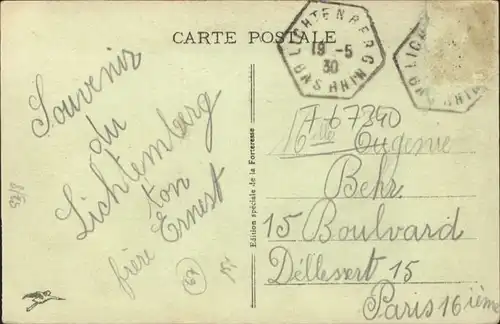 CARTE POSTALE
LICHTENBERG
19 -5
30
BAS RHIN
LICH
BAS RHIN
Souvenir
du
Lichtemberg
ton
frère Ernest
Edition spéciale de la Forteresse
67340
Mlle Eugenie
Behr.
15 Boulvard
Déllesert 15
Paris 16ième